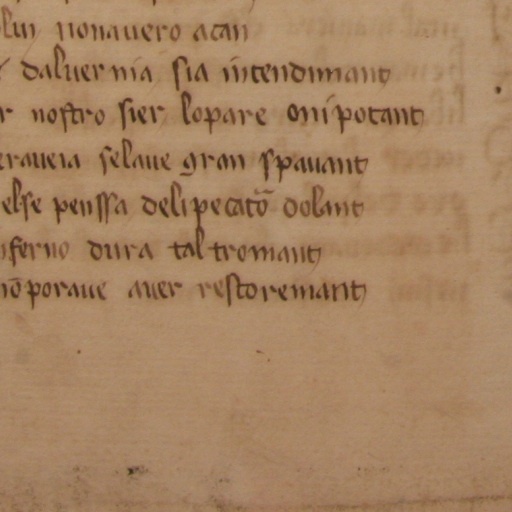 olui nonauero atan
daluernia sia intendimant
r nostro sier lopare onipotant
eraueia selaue gran spauant
else penssa delipecatō dolant
nferno dura tal tromant
nō poraue auer restoremant